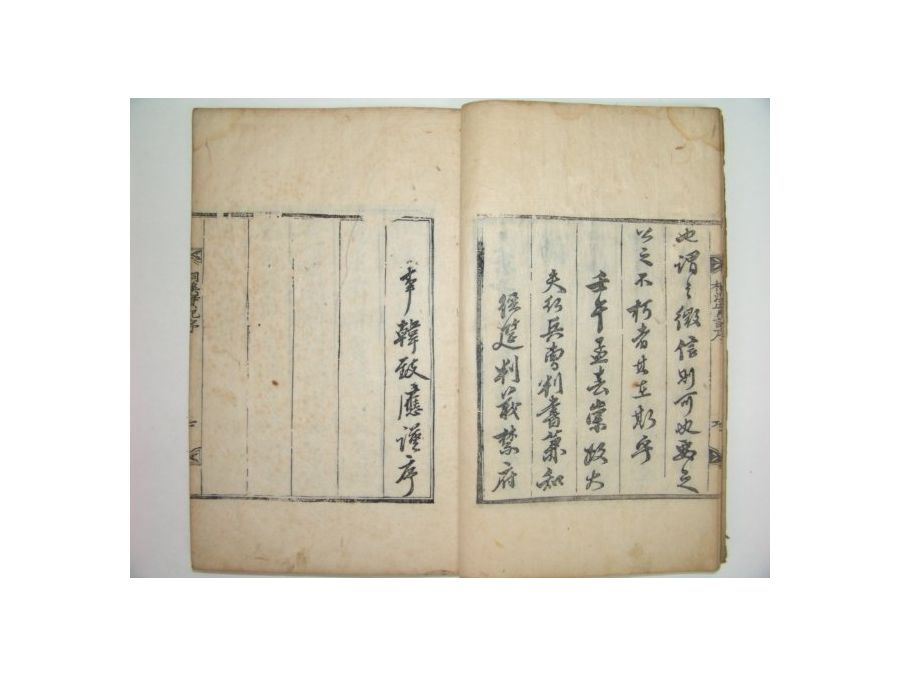 也謂之徵信則可也公之
以之不朽者其在斯乎
壬午孟春崇政大
夫行兵曹判書兼知
經筵判義禁府
事韓致應謹序